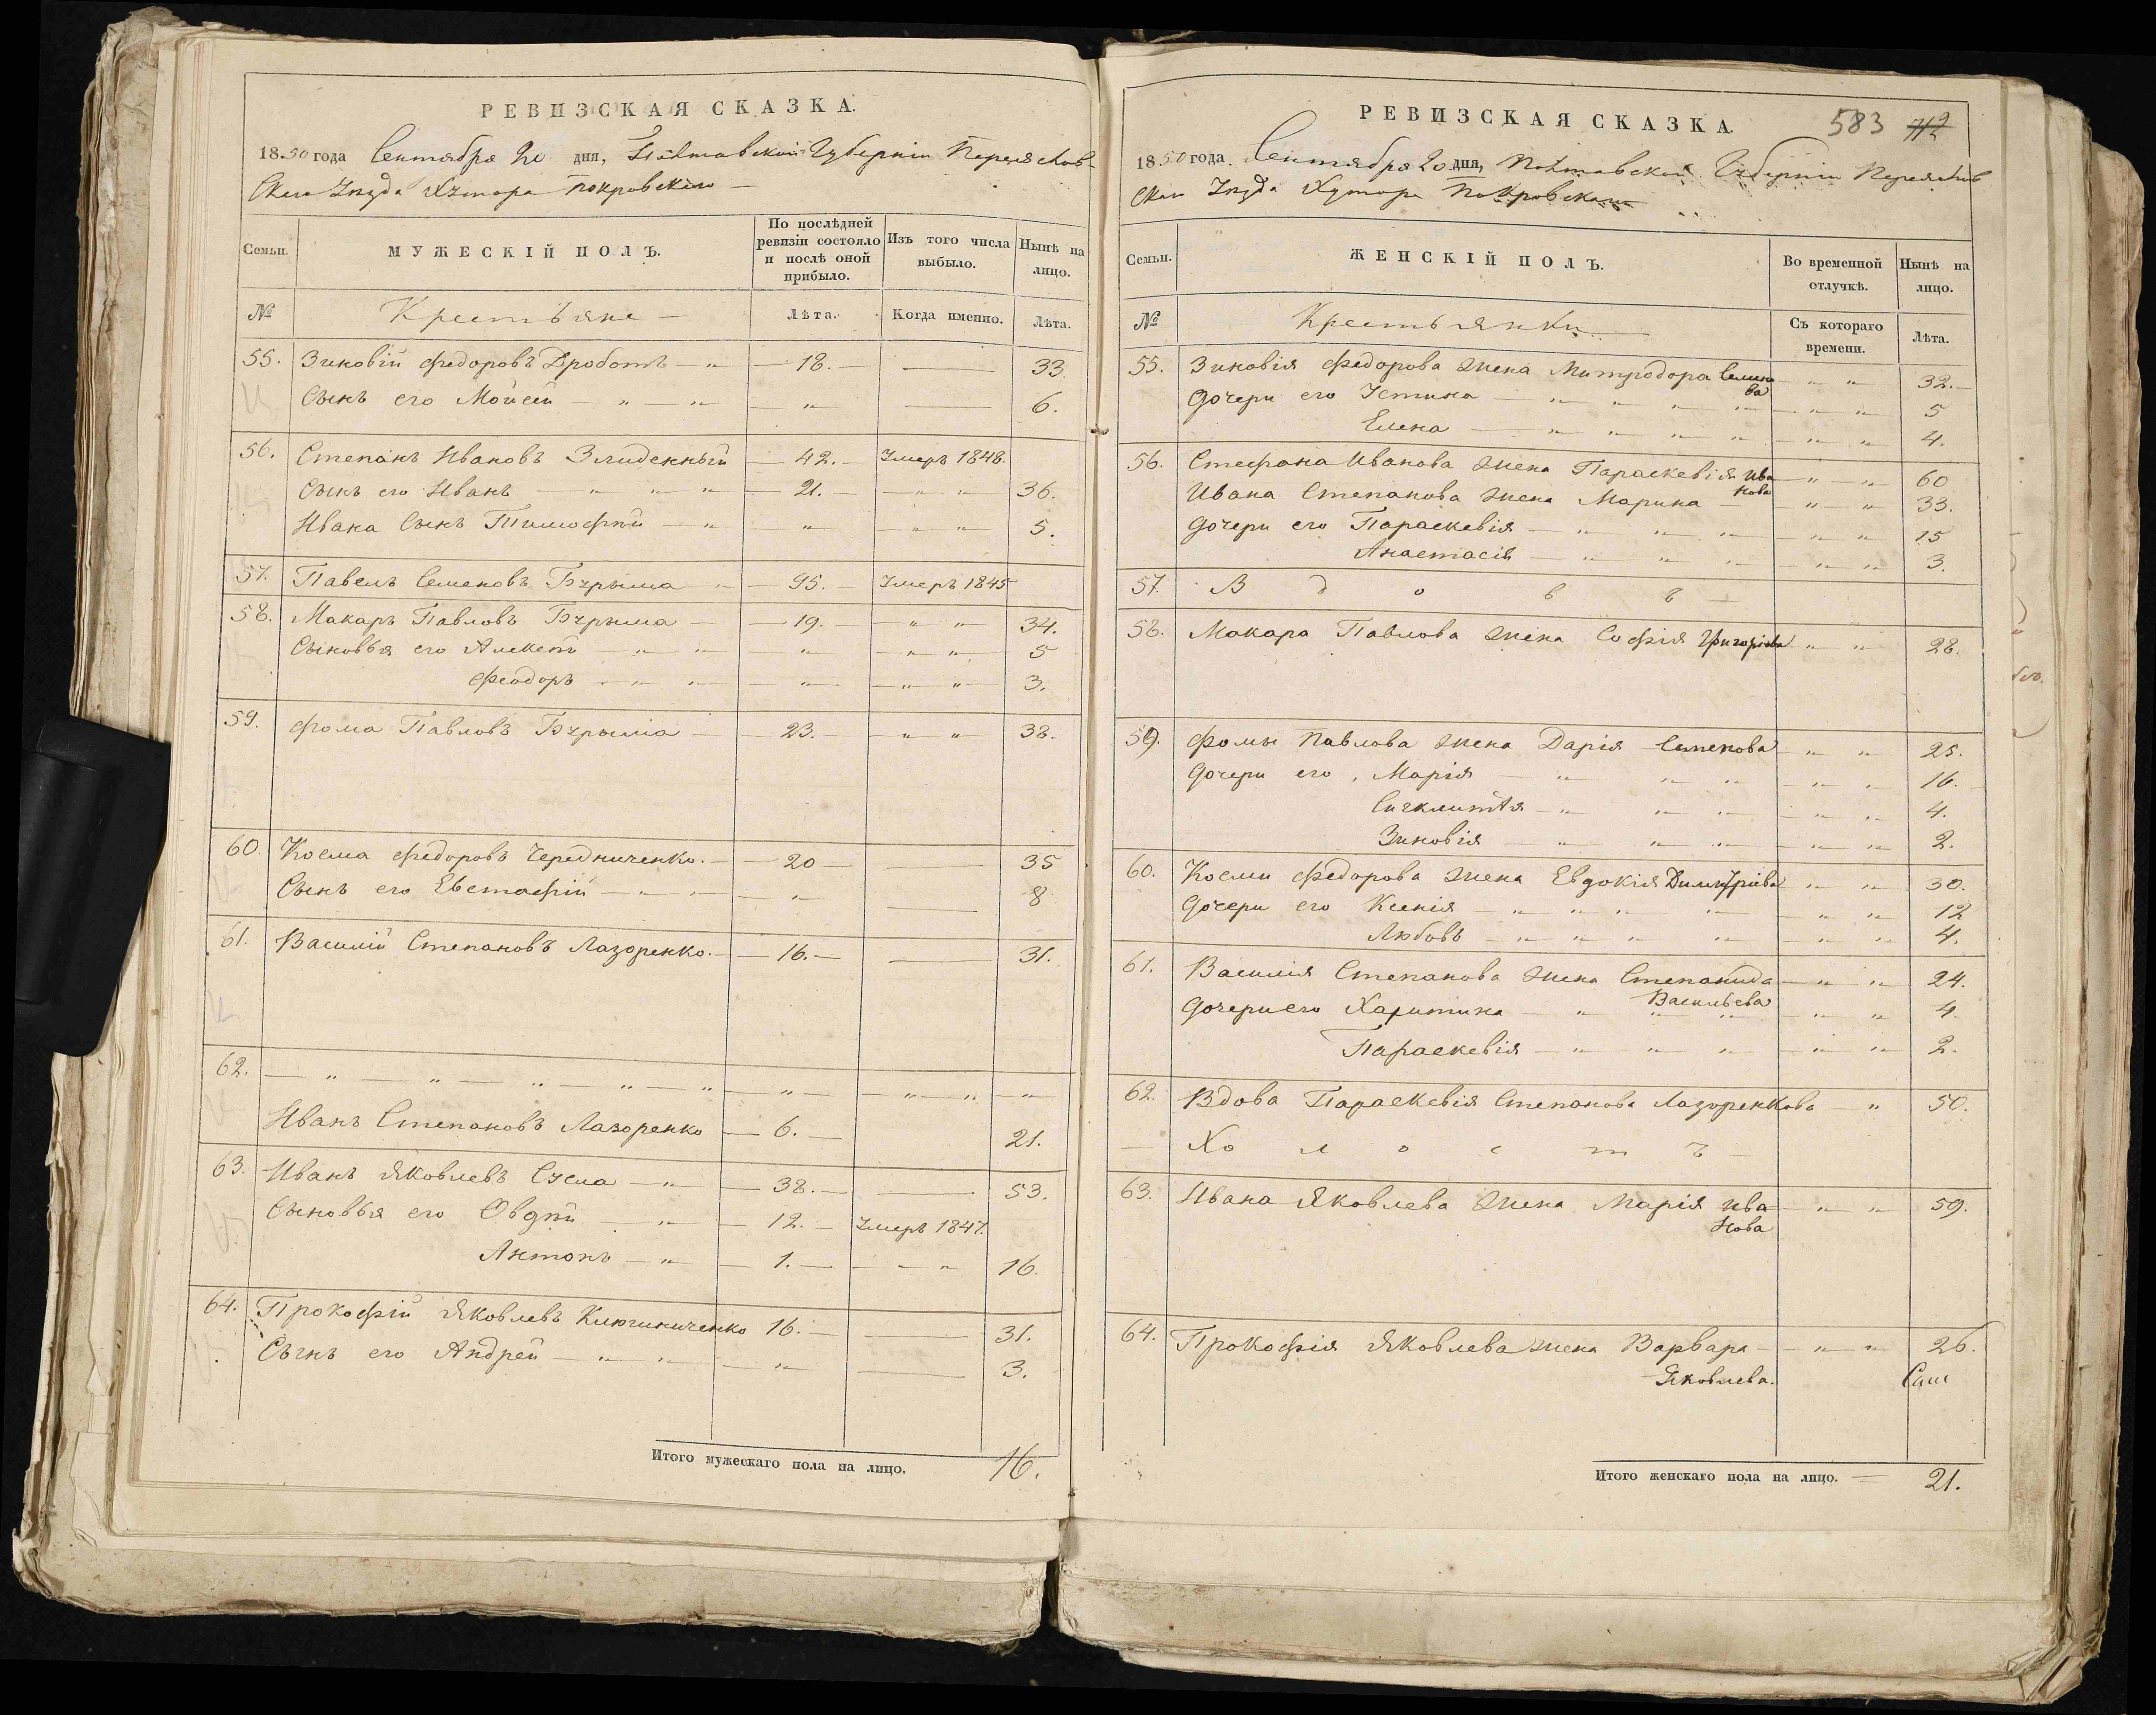 РЕВИЗСКАЯ СКАЗКА.
1850 года Сентября 20 дня, Полтавской Губерніи Переяслов-
скаго Уезда Хутора Покровскаго —
Семьи. МУЖЕСКІЙ ПОЛЪ. По послѣдней ревизіи состояло и послѣ оной прибыло. Изъ того числа выбыло. Нынѣ на лицо.
№ Крестьяне — Лѣта. Когда именно. Лѣта.
55. Зиновій Федоровъ Дроботъ — " — 18. — — 33
Сынъ его Мойсей — " — " — " — — 6.
56. Степанъ Ивановъ Злиденный — 42. — Умеръ 1848.
Сынъ его Иванъ — " " " — 21. — — " " 36.
Ивана Сынъ Тимофѣй — " — " " " 5.
57. Павелъ Семеновъ Бурыма — 95. — Умеръ 1845
58. Макаръ Павловъ Бурыма — 19. — " " 34.
Сыновья его Алексѣй — " " — " — " " 5
Феодоръ — " " — " — " " 3.
59. Фома Павловъ Бурыма — 23. — " " 38.
60. Косма Федоровъ Чередниченко. — 20 — 35
Сынъ его Евстафій — " " — " — — 8
61. Василій Степановъ Лазоренко. — 16. — — 31.
62. — " — " — " — " — " — " — " — " — " —
Иванъ Степановъ Лазоренко — 6. — 21.
63. Иванъ Яковлевъ Сула — " — 38. — — 53.
Сыновья его Овдѣй — " — 12. — Умеръ 1847.
Антонъ — " — 1. — — " " 16.
64. Прокофій Яковлевъ Ключниченко 16. — — 31.
Сынъ его Андрей — " " — " — — 3.
Итого мужескаго пола на лицо. 16.
РЕВИЗСКАЯ СКАЗКА. 583 712
1850 года. Сентября 20 дня, Полтавской Губерніи Переяслов
скаго Уезда Хутора Покровскаго
Семьи. ЖЕНСКІЙ ПОЛЪ. Во временной отлучкѣ. Нынѣ на лицо.
№ Крестьянки — Съ котораго времени. Лѣта.
55. Зиновія Федорова жена Митродора Семено " " 32. —
ва
Дочери его Устина — " " " " — " " 5
Елена — " " " " — " " 4.
56. Стефана Иванова жена Параскевія Ива — " — " 60
нова
Ивана Степанова жена Марина — " — " 33.
Дочери его Параскевія — " " " — " " 15
Анастасія — " " " — " " 3.
57. В д о в ъ —
58. Макара Павлова жена Софія Григоріева " " 28.
59. Фомы Павлова жена Дарія Семенова " " 25.
Дочери его, Марія — " " " — " " 16.
Сигклитія — " " " — " " 4.
Зиновія — " " " — " " 2.
60. Космы Федорова жена Евдокія Димитріева " " 30.
Дочери его Ксенія — " " " " — " " 12
Любовь — " " " " — " " 4.
61. Василія Степанова жена Степанида — " " 24.
Васильева
Дочери его Харитина — " " " — " " 4
Параскевія — " " " — " " 2.
62. Вдова Параскевія Степанова Лазоренкова — " 50.
— Хо л о с т ъ —
63. Ивана Яковлева жена Марія Ива — " " 59.
нова
64. Прокофія Яковлева жена Варвара — " " 26.
Яковлева.
Итого женскаго пола на лицо. — 21.